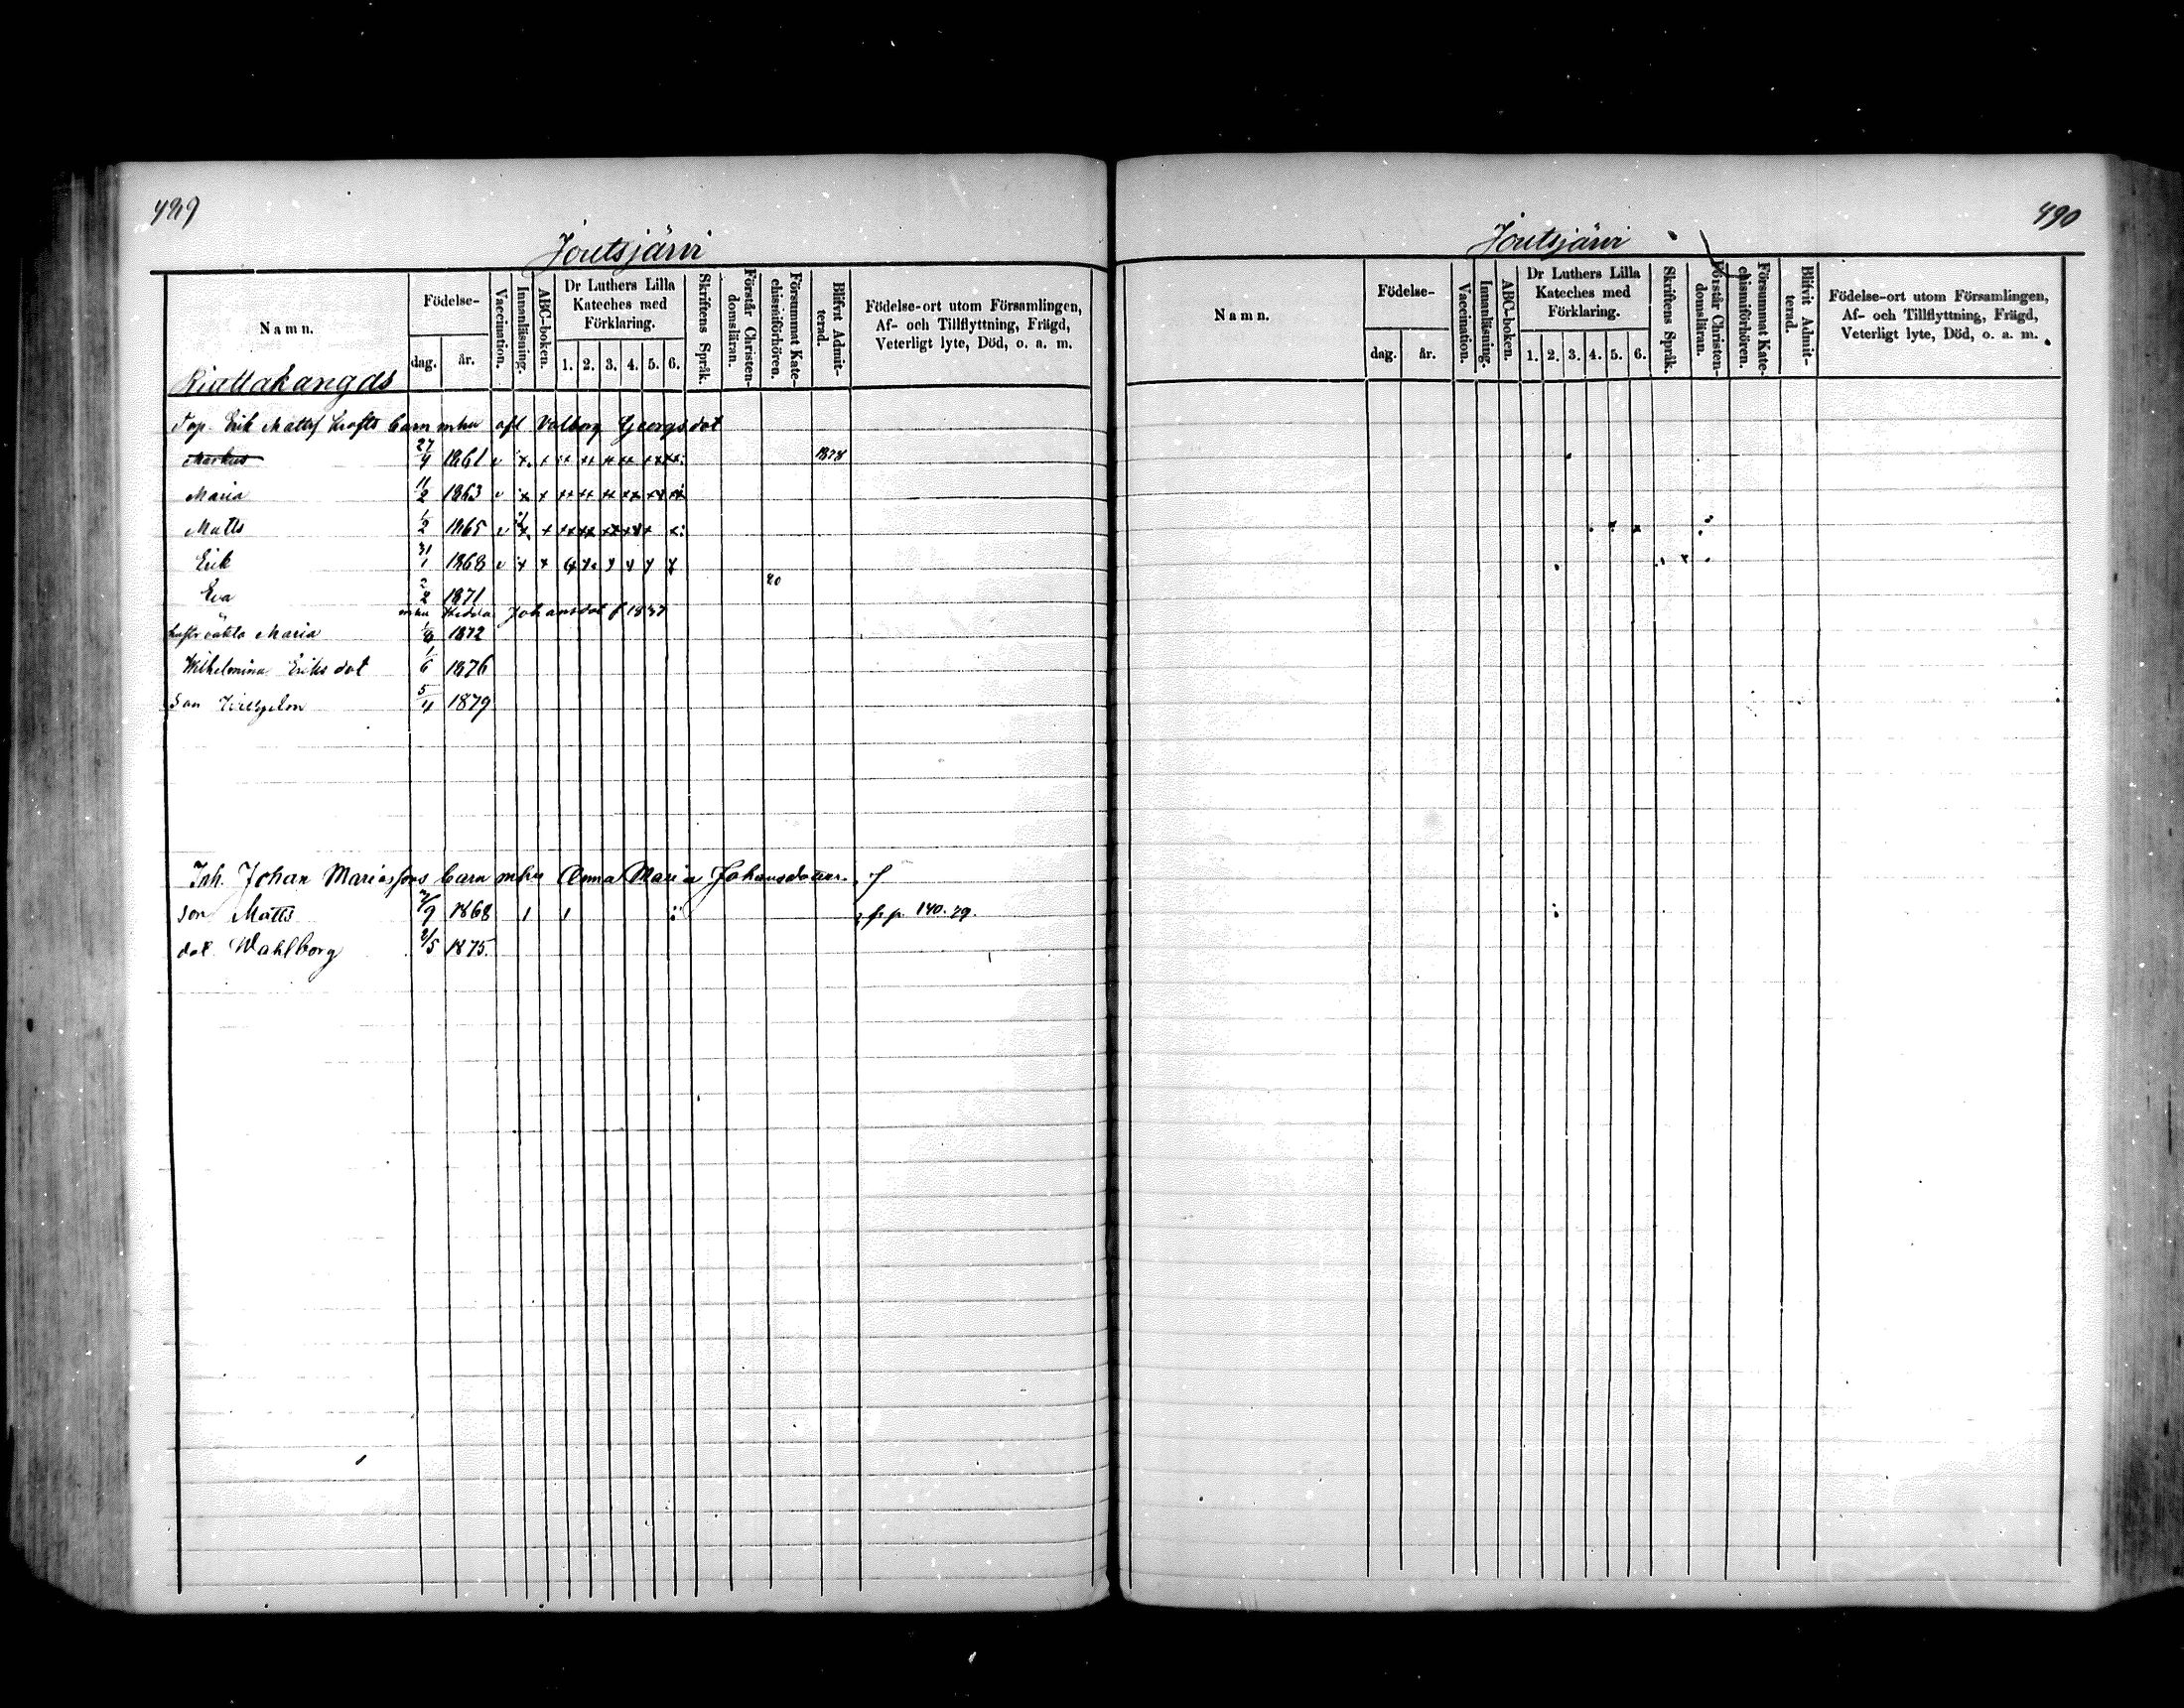 489
Joutsjärvi
Namn.
Födelse-
dag.
år.
Vaccination.
Innanläsning.
ABC-boken.
Dr Luthers Lilla
Kateches med
Förklaring.
1. 2. 3. 4. 5. 6.
Skriftens Språk.
Förstår Christen-
domsläran.
Försummat Kate-
chismiförhören.
Blifvit Admit-
terad.
Födelse-ort utom Församlingen,
Af- och Tillflyttning, Frägd,
Veterligt lyte, Död, o. a. m.
Erik Barn mhu afl Valborg Georgsdot
Markus 27/4 1861 v x x 1878
Maria 11/2 1863 v x x
Matts 1/2 1865 v x x
Erik 31/1 1868 v x x
Eva 2/2 1871 80
mhu Hedda Johansdot f 1837
Maria 1/8 1872
Wilhelmina Eriksdot 1/6 1876
Son 5/4 1879
Inh. Johan Mariassons barn mhu Anna Maria Johansdotter
son Matts 1868 140. 79.
dot. Wahlborg 2/5 1875.
490
Joutsjärvi
Namn.
Födelse-
dag.
år.
Vaccination.
Innanläsning.
ABC-boken.
Dr Luthers Lilla
Kateches med
Förklaring.
1. 2. 3. 4. 5. 6.
Skriftens Språk.
Förstår Christen-
domsläran.
Försummat Kate-
chismiförhören.
Blifvit Admit-
terad.
Födelse-ort utom Församlingen,
Af- och Tillflyttning, Frägd,
Veterligt lyte, Död, o. a. m.